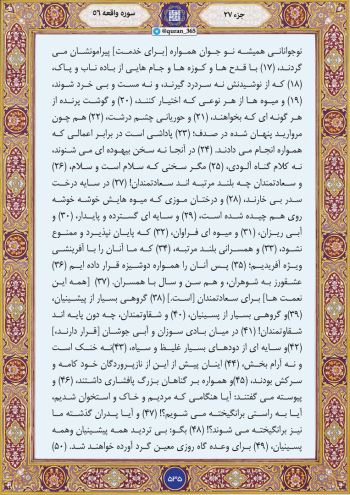 جزء ۲۷
سوره واقعه ۵۶
@quran_365
نوجوانانی همیشه نو جوان همواره [برای خدمت] پیرامونشان می
گردند، (۱۷) با قدح ها و کوزه ها و جام هایی از باده ناب و پاک،
(۱۸) که از نوشیدنش نه سردرد گیرند، و نه مست و بی خرد شوند،
(۱۹) و میوه ها از هر نوعی که اختیار کنند، (۲۰) و گوشت پرنده از
هر گونه ای که بخواهند، (۲۱) و حوریانی چشم درشت، (۲۲) هم چون
مروارید پنهان شده در صدف؛ (۲۳) پاداشی است در برابر اعمالی که
همواره انجام می دادند. (۲۴) در آنجا نه سخن بیهوده ای می شنوند،
نه کلام گناه آلودی، (۲۵) مگر سخنی که سلام است و سلام، (۲۶)
و سعادتمندان چه بلند مرتبه اند سعادتمندان! (۲۷) در سایه درخت
سدر بی خارند، (۲۸) و درختان موزی که میوه هایش خوشه خوشه
روی هم چیده شده است، (۲۹) و سایه ای گسترده و پایدار، (۳۰) و
آبی ریزان، (۳۱) و میوه ای فراوان، (۳۲) که پایان نپذیرد و ممنوع
نشود، (۳۳) و همسرانی بلند مرتبه، (۳۴) که ما آنان را با آفرینشی
ویژه آفریدیم؛ (۳۵) پس آنان را همواره دوشیزه قرار داده ایم (۳۶)
عشقورز به شوهران، و هم سن و سال با همسران. (۳۷) [همه این
نعمت ها] برای سعادتمندان [است.] (۳۸) گروهی بسیار از پیشینیان،
(۳۹)و گروهی بسیار از پسینیان، (۴۰) و شقاوتمندان، چه دون پایه اند
شقاوتمندان! (۴۱) در میان بادی سوزان و آبی جوشان [قرار دارند،]
(۴۲)و سایه ای از دودهای بسیار غلیظ و سیاه، (۴۳)نه خنک است
و نه آرام بخش، (۴۴) اینان پیش از این از نازپروردگان خود کامه و
سرکش بودند، (۴۵)و همواره بر گناهان بزرگ پافشاری داشتند، (۴۶) و
پیوسته می گفتند: آیا هنگامی که مردیم و خاک و استخوان شدیم،
آیا به راستی برانگیخته می شویم؟! (۴۷) و آیا پدران گذشته ما
نیز برانگیخته می شوند؟! (۴۸) بگو: بی تردید همه پیشینیان وهمه
پسینیان، (۴۹) برای وعده گاه روزی معین گرد آورده خواهند شد. (۵۰)
۵۳۵